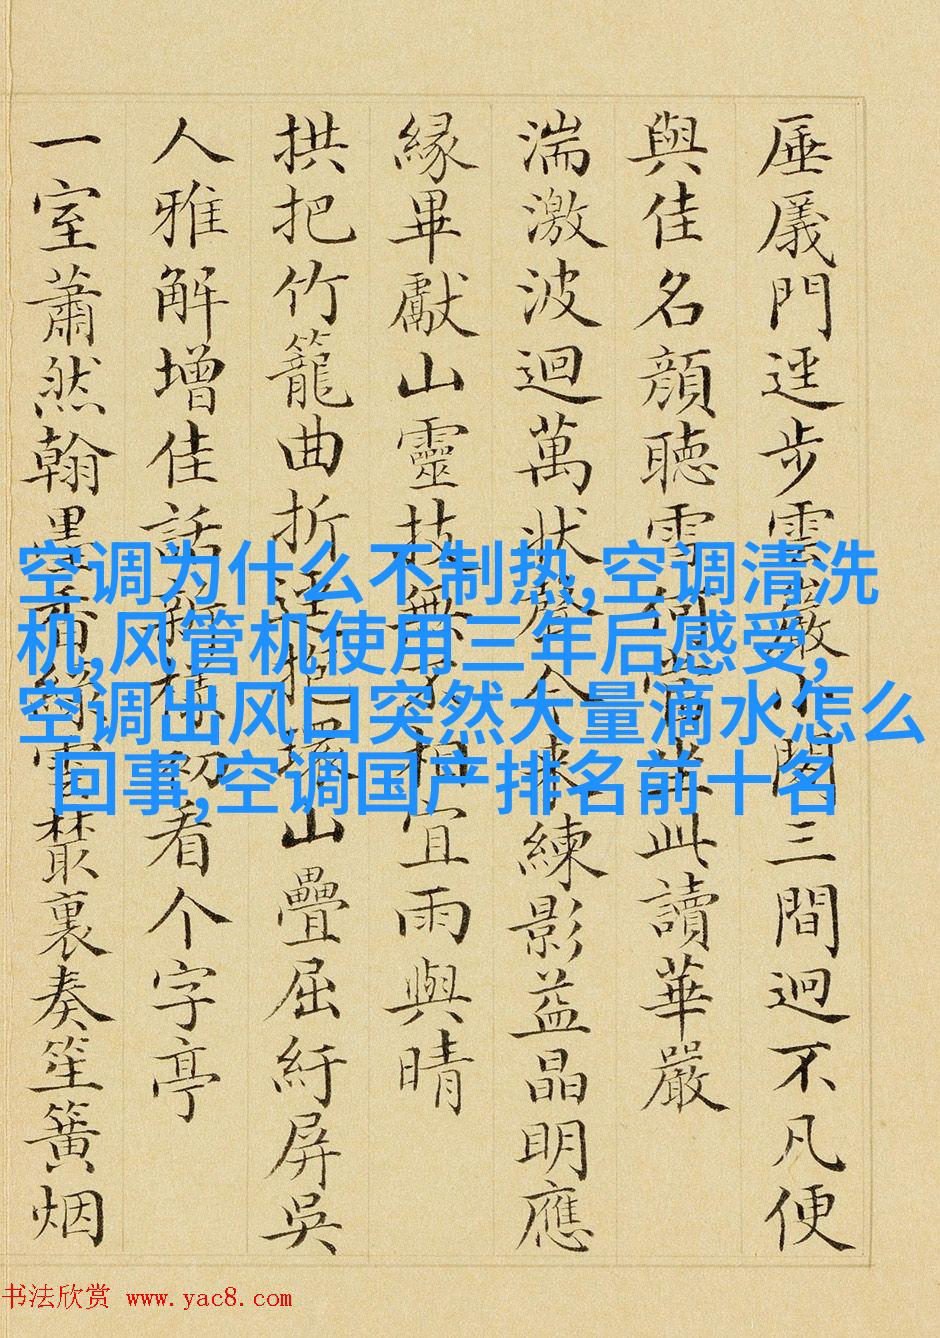 厜㕒門迳步雲巖小閣三間迥不凡便
與佳名顔聽雪何當此讀華嚴
湍激波迴萬狀聲今来練影益晶明應
緣畢獻山靈技無不相宜雨與晴
拱把竹籠曲折迳山疊屈紆屏吳
人雅解增佳話新構初看个字亭
一室蕭然翰墨香綠雪叢裏奏笙簧烟
空调为什么不制热,空调清洗
机,风管机使用三年后感受,
空调出风口突然大量滴水怎么
回事,空调国产排名前十名
书法欣赏 www.yac8.com